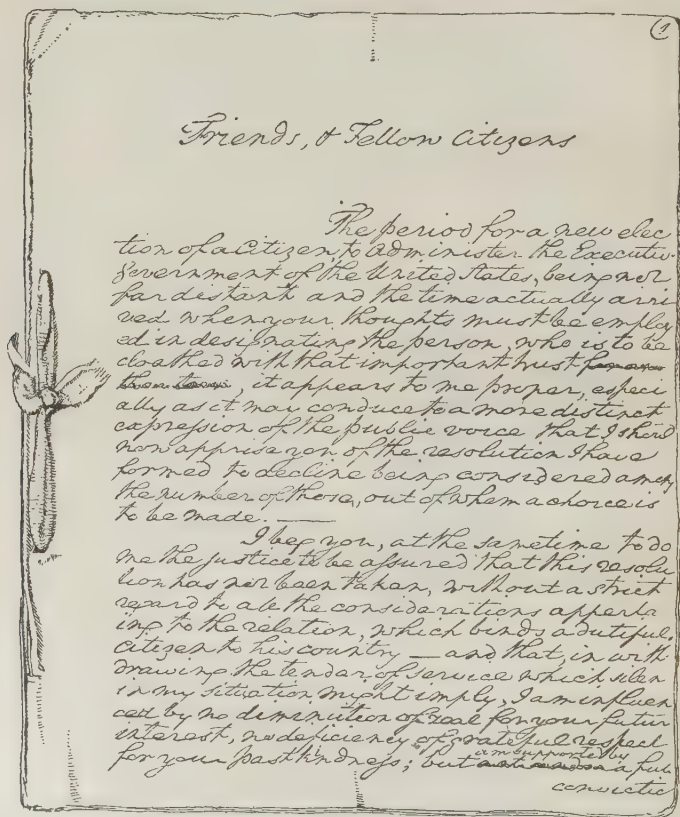 1
Friends, & Fellow Citizens
The period for a new elec
tion of a Citizen, to administer the Executive
government of the United States, being not
far distant, and the time actually arri
ved when your thoughts must be employ
ed in designating the person, who is to be
cloathed with that important trust
, it appears to me proper, especi
ally as it may conduce to a more distinct
expression of the public voice that I should
now apprise you of the resolution I have
formed to decline being considered among
the number of those, out of whom a choice is
to be made.
I beg you, at the same time to do
me the justice to be assured that this resolu
tion has not been taken, without a strict
regard to all the considerations apperta
ing to the relation, which binds a dutiful
citizen to his country — and that, in with
drawing the tender of service which silen
in my situation might imply, I am influen
ced by no diminution of zeal for your future
interest, no deficiency of grateful respect
am supported by
for your past kindness; but a full
convictio